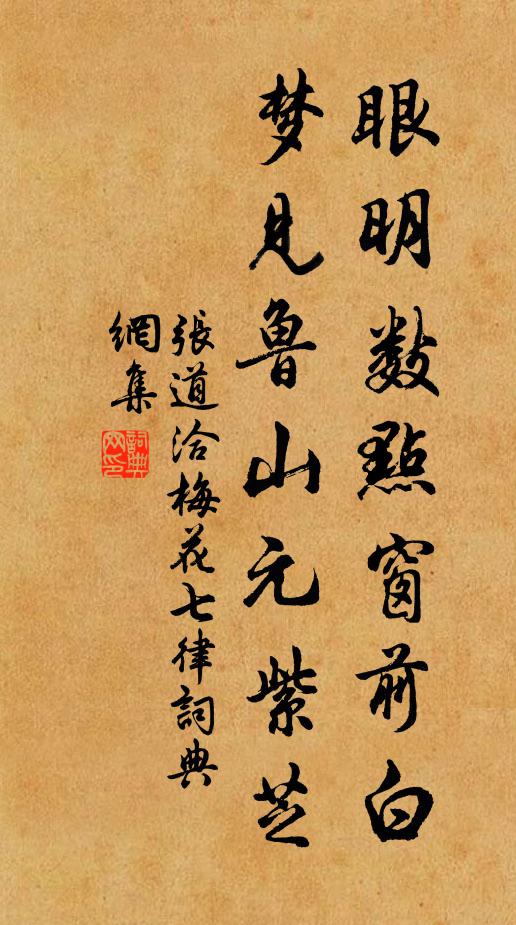 眼明數點窗前白
梦見魯山元紫芝
張道洽梅花七律詞典
網集
詞典
网印